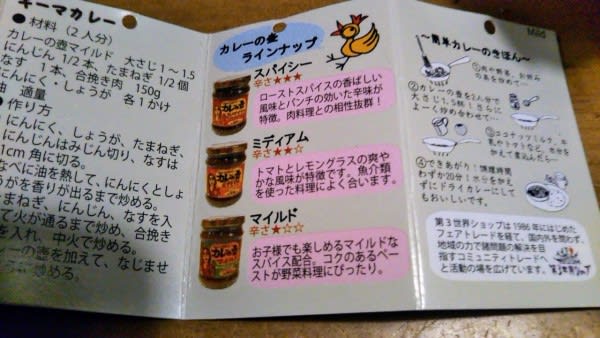 キーマカレー
●材料(2人分)
カレーの壺マイルド 大さじ1~1.5
にんじん 1/2本、たまねぎ 1/2個
なす 1本、合挽き肉 150g
にんにく・しょうが 各1かけ
油 適量
●作り方
にんにく、しょうが、たまねぎ、
にんじんはみじん切り、なすは
1cm角に切る。
なべに油を熱して、にんにくとしょ
うがを香りが出るまで炒める。
たまねぎ、にんじん、なすを入
て火が通るまで炒め、合挽き
を入れ、中火で炒める。
の壺を加えて、なじませ
カレーの壺
ラインナップ
スパイシー
辛さ★★★
ローストスパイスの香ばしい
風味とパンチの効いた辛味が
特徴。肉料理との相性抜群!
ミディアム
辛さ★★☆
トマトとレモングラスの爽や
かな風味が特徴です。魚介類
を使った料理によく合います。
マイルド
辛さ★☆☆
お子様でも楽しめるマイルドな
スパイス配合。コクのあるペー
ストが野菜料理にぴったり。
Mild
~簡単カレーのきほん~
①肉や野菜、お好み
の具を炒めて…
②カレーの壺を
大さじ1.5杯!さらに
よーく炒め合わせて…
③ココナッツミルク、牛
乳やトマトなど、水分を
加えて煮込んだら…
④できあがり!調理時間
わずか20分!水分を加え
ずにドライカレーにして
もおいしいです。
第3世界ショップは1986年にはじめた
フェアトレードを経て、国内外を問わず、
地域の力で諸問題の解決を目
指すコミュニティトレードへ
と活動の場を広げています。